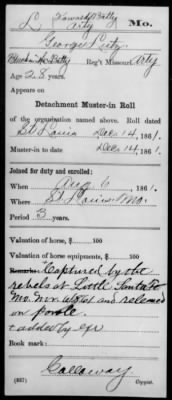 L | Howard's Batty Arty | Mo.
George Lutz
, Reg't Missouri Arty
Age 28 years
Appears on
Detachment Muster-in Roll
of the organization named above. Roll dated
St Louis Dec 14, 1861.
Muster-in to date Dec 14, 1861.
Joined for duty and enrolled:
When Aug 6, 1861.
Where St Louis Mo.
Period 3 years.
Valuation of horse, $ 100
Valuation of horse equipments, $ 100
Remarks: Captured by the
rebels at Little Santa Fe
Mo. Nov and released
on parole.
+ added by
Book mark:
Callaway
(337) Copyist.